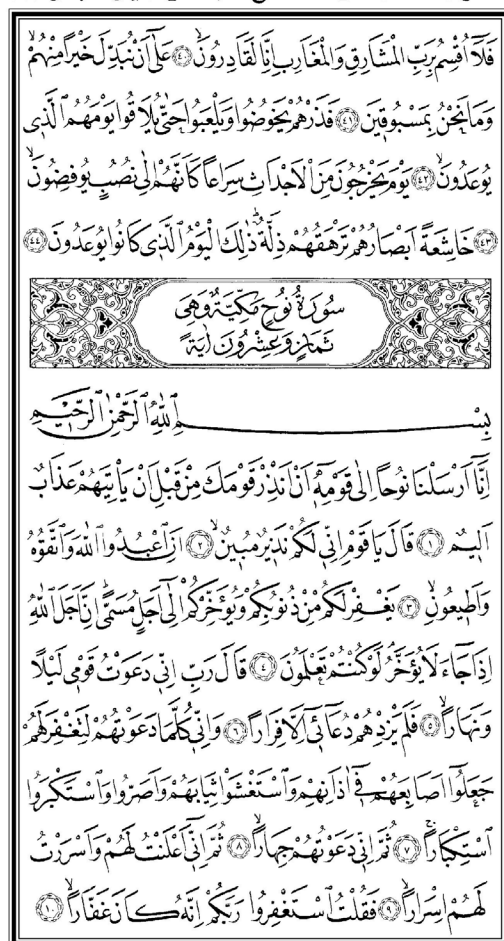 فَلَٓا اُقْسِمُ بِرَبِّ الْمَشَارِقِ وَالْمَغَارِبِ اِنَّا لَقَادِرُونَۙ ﴿٤٠﴾ عَلٰٓى اَنْ نُبَدِّلَ خَيْرًا مِنْهُمْۙ
وَمَا نَحْنُ بِمَسْبُوق۪ينَ ﴿٤١﴾ فَذَرْهُمْ يَخُوضُوا وَيَلْعَبُوا حَتّٰى يُلَاقُوا يَوْمَهُمُ الَّذ۪ي
يُوعَدُونَۙ ﴿٤٢﴾ يَوْمَ يَخْرُجُونَ مِنَ الْاَجْدَاثِ سِرَاعًا كَاَنَّهُمْ اِلٰى نُصُبٍ يُوفِضُونَۙ
﴿٤٣﴾ خَاشِعَةً اَبْصَارُهُمْ تَرْهَقُهُمْ ذِلَّةٌۜ ذٰلِكَ الْيَوْمُ الَّذ۪ي كَانُوا يُوعَدُونَ ﴿٤٤﴾
سُورَةُ نُوحٍ مَكِّيَّةٌ وَهِيَ
ثَمَانٍ وَعِشْرُونَ اٰيَةً
بِسْمِ اللّٰهِ الرَّحْمٰنِ الرَّح۪يمِ
اِنَّٓا اَرْسَلْنَا نُوحًا اِلٰى قَوْمِه۪ٓ اَنْ اَنْذِرْ قَوْمَكَ مِنْ قَبْلِ اَنْ يَأْتِيَهُمْ عَذَابٌ
اَل۪يمٌ ﴿١﴾ قَالَ يَا قَوْمِ اِنّ۪ي لَكُمْ نَذ۪يرٌ مُب۪ينٌۙ ﴿٢﴾ اَنِ اعْبُدُوا اللّٰهَ وَاتَّقُوهُ
وَاَط۪يعُونِۙ ﴿٣﴾ يَغْفِرْ لَكُمْ مِنْ ذُنُوبِكُمْ وَيُؤَخِّرْكُمْ اِلٰٓى اَجَلٍ مُسَمًّىۜ اِنَّ اَجَلَ اللّٰهِ
اِذَا جَٓاءَ لَا يُؤَخَّرُۢ لَوْ كُنْتُمْ تَعْلَمُونَ ﴿٤﴾ قَالَ رَبِّ اِنّ۪ي دَعَوْتُ قَوْم۪ي لَيْلًا
وَنَهَارًاۙ ﴿٥﴾ فَلَمْ يَزِدْهُمْ دُعَٓاء۪ٓي اِلَّا فِرَارًا ﴿٦﴾ وَاِنّ۪ي كُلَّمَا دَعَوْتُهُمْ لِتَغْفِرَ لَهُمْ
جَعَلُٓوا اَصَابِعَهُمْ ف۪ٓي اٰذَانِهِمْ وَاسْتَغْشَوْا ثِيَابَهُمْ وَاَصَرُّوا وَاسْتَكْبَرُوا
اسْتِكْبَارًاۚ ﴿٧﴾ ثُمَّ اِنّ۪ي دَعَوْتُهُمْ جِهَارًاۙ ﴿٨﴾ ثُمَّ اِنّ۪ٓي اَعْلَنْتُ لَهُمْ وَاَسْرَرْتُ
لَهُمْ اِسْرَارًاۙ ﴿٩﴾ فَقُلْتُ اسْتَغْفِرُوا رَبَّكُمْ اِنَّهُ كَانَ غَفَّارًاۙ ﴿١٠﴾